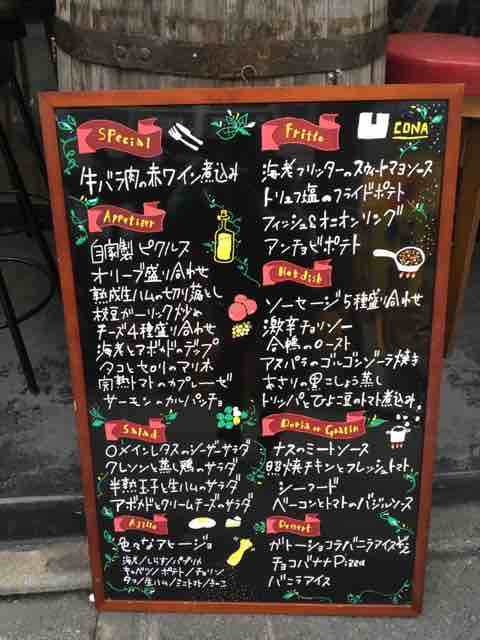 Special
牛バラ肉の赤ワイン煮込み
Appetizer
自家製ピクルス
オリーブ盛り合わせ
熟成生ハムの切り落とし
枝豆ガーリック炒め
チーズ4種盛り合わせ
海老とアボカドのディップ
タコとセロリのマリネ
完熟トマトのカプレーゼ
サーモンのカルパッチョ
Salad
ロメインレタスのシーザーサラダ
クレソンと蒸し鶏のサラダ
半熟玉子と生ハムのサラダ
アボカドとクリームチーズのサラダ
Ajillo
色々なアヒージョ
海老/しらす/パプリカ
キャベツ/ポテト/チョリソ
タコ/生ハム/ミニトマト/きのこ
CONA
Fritto
海老フリッターのスウィートマヨソース
トリュフ塩のフライドポテト
フィッシュ&オニオンリング
アンチョビポテト
Hot dish
ソーセージ5種盛り合わせ
激辛チョリソー
合鴨のロースト
アスパラのゴルゴンゾーラ焼き
あさりの黒こしょう蒸し
トリッパとひよこ豆のトマト煮込み
Doria or Gratin
ナスのミートソース
照焼チキンとフレッシュトマト
シーフード
ベーコンとトマトのバジルソース
Dessert
ガトーショコラバニラアイス
チョコバナナPizza
バニラアイス